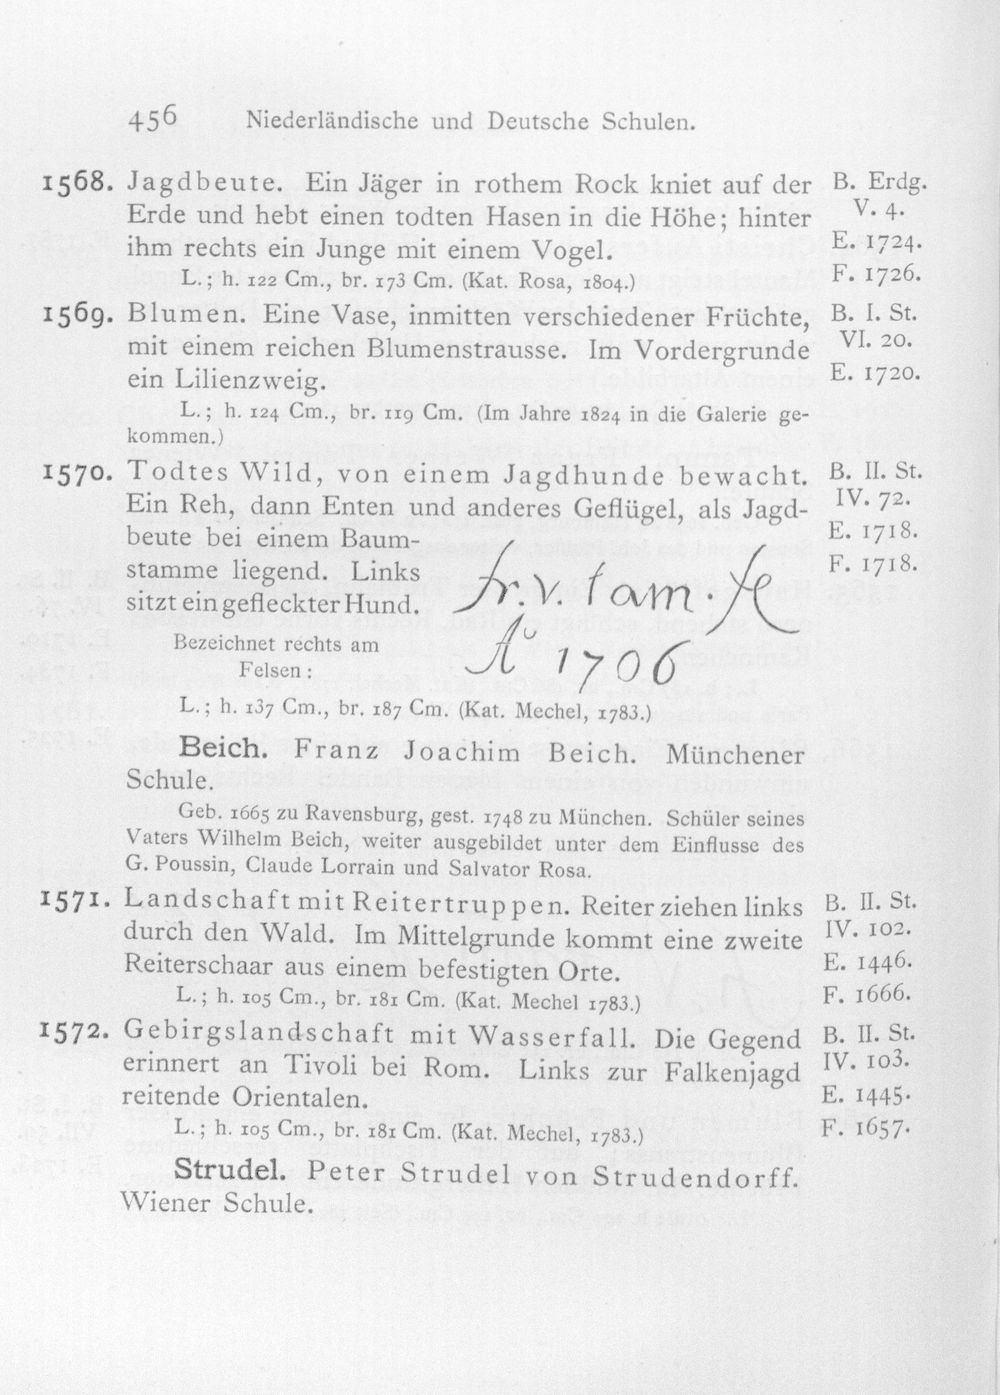 456 Niederländische und Deutsche Schulen.
1568. Jagdbeute. Ein Jäger in rothem Rock kniet auf der B. Erdg.
Erde und hebt einen todten Hasen in die Höhe; hinter V. 4.
ihm rechts ein Junge mit einem Vogel. E. 1724.
L.; h. 122 Cm., br. 173 Cm. (Kat. Rosa, 1804.) F. 1726.
1569. Blumen. Eine Vase, inmitten verschiedener Früchte, B. I. St.
mit einem reichen Blumenstrausse. Im Vordergrunde VI. 20.
ein Lilienzweig. E. 1720.
L.; h. 124 Cm., br. 119 Cm. (Im Jahre 1824 in die Galerie ge-
kommen.)
1570. Todtes Wild, von einem Jagdhunde bewacht. B. II. St.
Ein Reh, dann Enten und anderes Geflügel, als Jagd- IV. 72.
beute bei einem Baum- E. 1718.
stamme liegend. Links F. 1718.
sitzt ein gefleckter Hund. fr. v. tam. fe
Bezeichnet rechts am A° 1706
Felsen:
L.; h. 137 Cm., br. 187 Cm. (Kat. Mechel, 1783.)
Beich. Franz Joachim Beich. Münchener
Schule.
Geb. 1665 zu Ravensburg, gest. 1748 zu München. Schüler seines
Vaters Wilhelm Beich, weiter ausgebildet unter dem Einflusse des
G. Poussin, Claude Lorrain und Salvator Rosa.
1571. Landschaft mit Reitertruppen. Reiter ziehen links B. II. St.
durch den Wald. Im Mittelgrunde kommt eine zweite IV. 102.
Reiterschaar aus einem befestigten Orte. E. 1446.
L.; h. 105 Cm., br. 181 Cm. (Kat. Mechel 1783.) F. 1666.
1572. Gebirgslandschaft mit Wasserfall. Die Gegend B. II. St.
erinnert an Tivoli bei Rom. Links zur Falkenjagd IV. 103.
reitende Orientalen. E. 1445.
L.; h. 105 Cm., br. 181 Cm. (Kat. Mechel, 1783.) F. 1657.
Strudel. Peter Strudel von Strudendorff.
Wiener Schule.